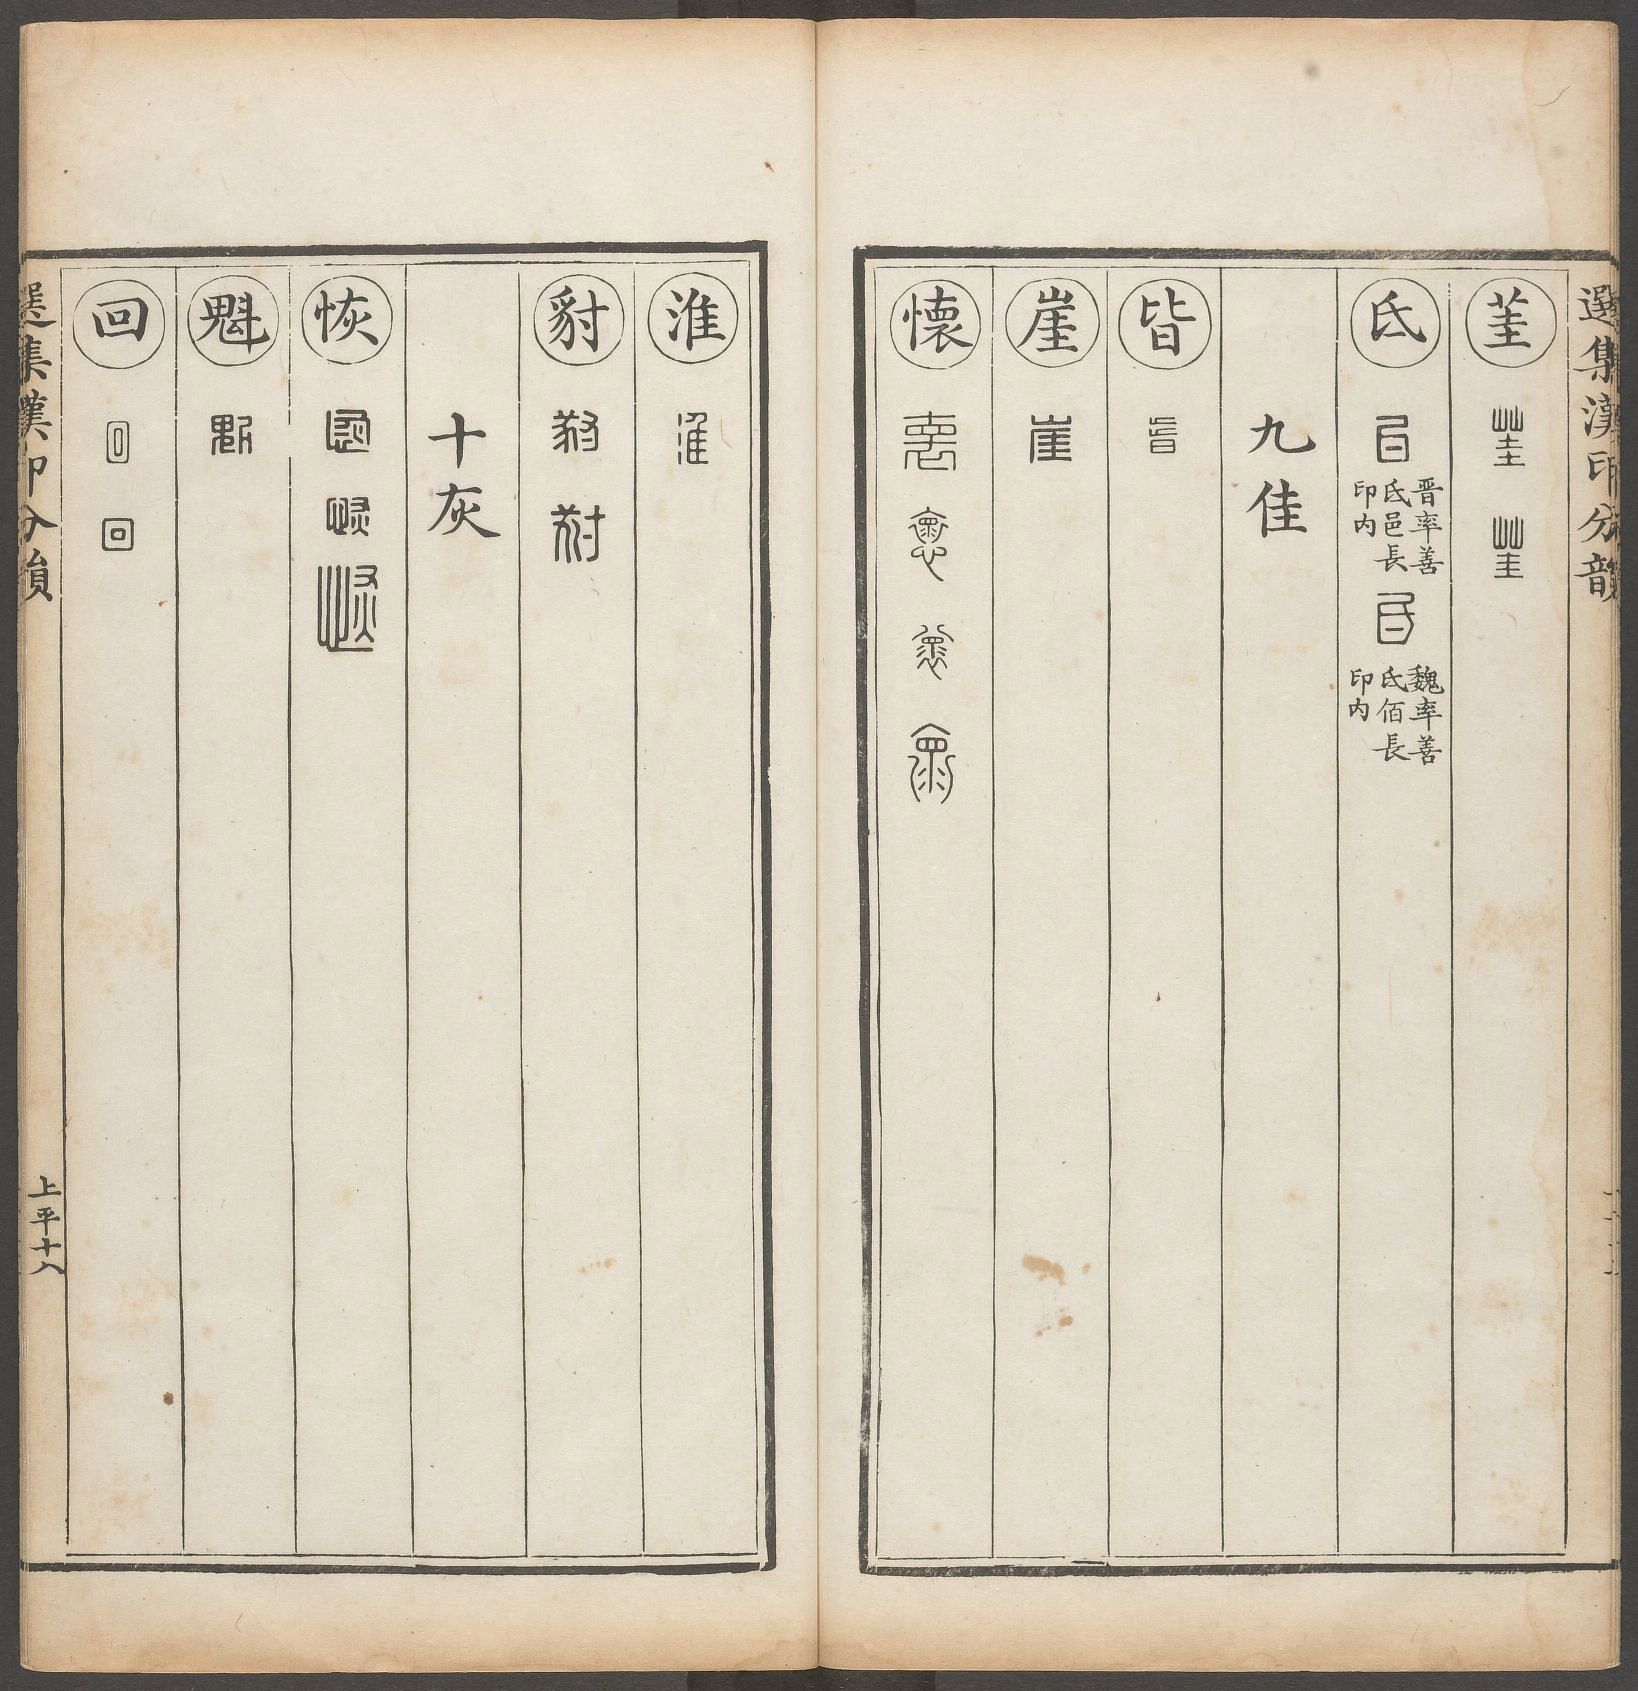 選集漢印分韻
荎
氐
晋率善
氐邑長
印內
魏率善
氐佰長
印內
九佳
皆
崖
懷
淮
豺
十灰
恢
魁
回
選集漢印分韻
上平十八